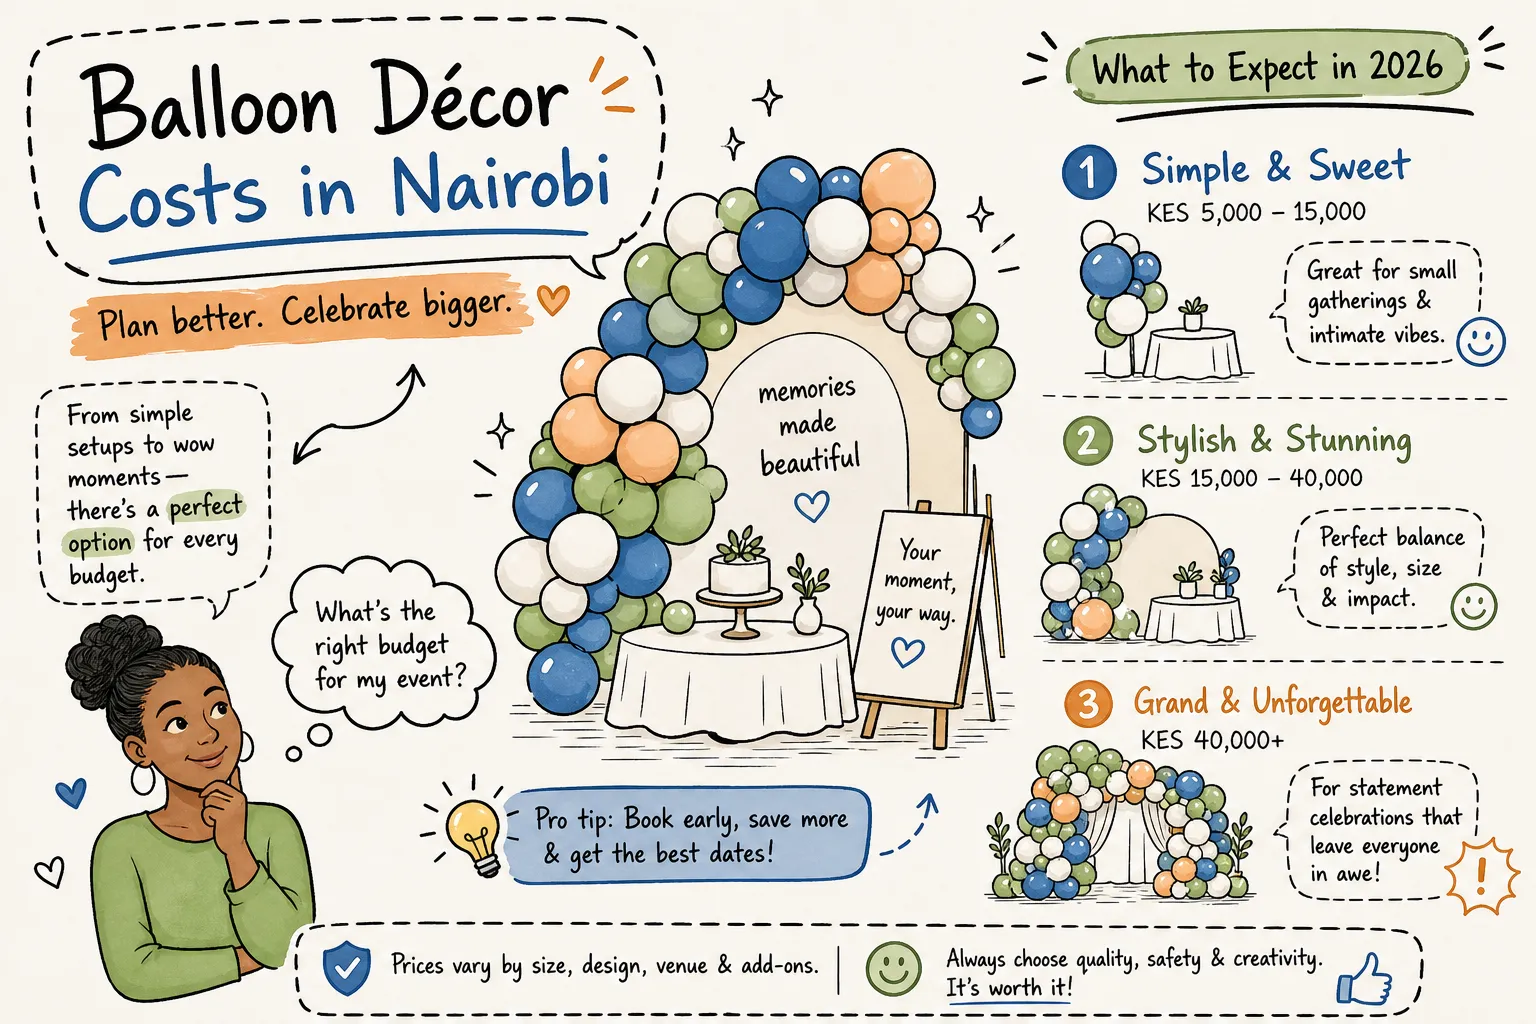 Balloon Décor
Costs in Nairobi
Plan better. Celebrate bigger.
From simple
setups to wow
moments—
there's a perfect
option for every
budget.
What's the
right budget
for my event?
memories
made
beautiful
Your
moment,
your way.
Pro tip: Book early, save more
& get the best dates!
What to Expect in 2026
1 Simple & Sweet
KES 5,000 – 15,000
Great for small
gatherings &
intimate vibes.
2 Stylish & Stunning
KES 15,000 – 40,000
Perfect balance
of style, size
& impact.
3 Grand & Unforgettable
KES 40,000+
For statement
celebrations that
leave everyone
in awe!
!
Prices vary by size, design, venue & add-ons.
Always choose quality, safety & creativity.
It's worth it!